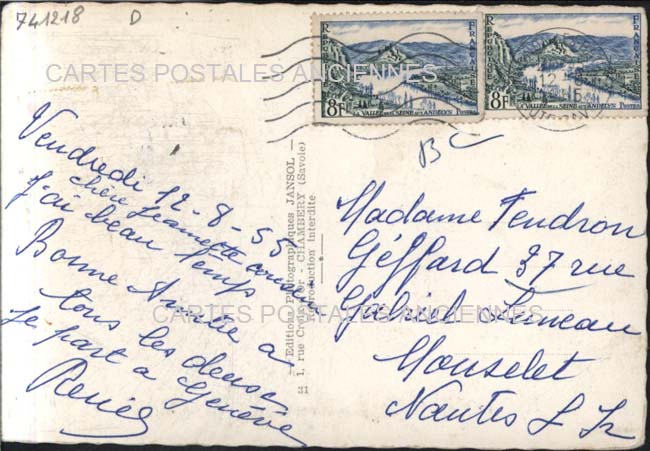 741218 D
CARTES POSTALES ANCIENNES
Vendredi 12-8-55
chère Jeanette
J'ai beau temps
Bonne Année a
tous les deux
Je part a Genève
Renée
Editions Photographiques JANSOL
1, rue Croix d'or - CHAMBERY (Savoie)
Reproduction Interdite
21
REPUBLIQUE FRANÇAISE
8F
LA VALLÉE DE LA SEINE AUX ANDELYS POSTES
REPUBLIQUE FRANÇAISE
8F
LA VALLÉE DE LA SEINE AUX ANDELYS POSTES
12
Madame Fendron
Geffard 37 rue
Gabriel Luneau
Monselet
Nantes L Ir
CARTES POSTALES ANCIENNES